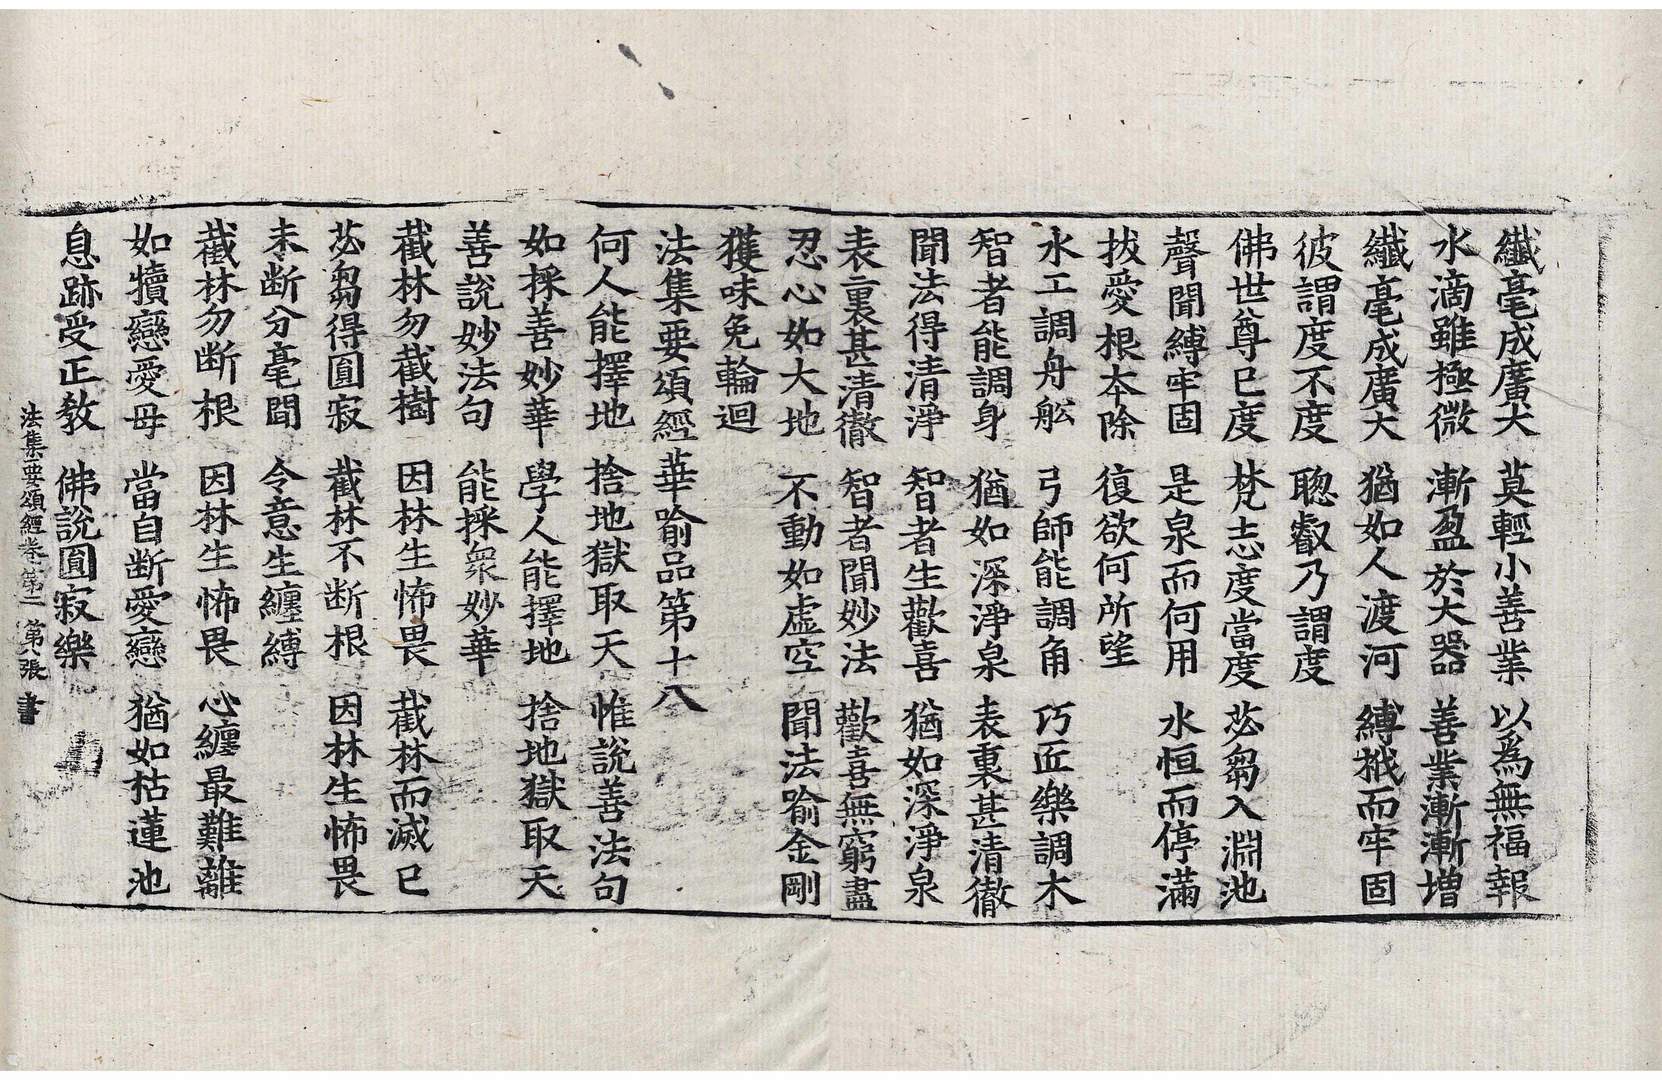 纖毫成廣大　莫輕小善業　以爲無福報
水滴雖極微　漸盈於大器　善業漸漸增
纖毫成廣大　猶如人渡河　縛栰而牢固
彼謂度不度　聰叡乃謂度
佛世尊已度　梵志度當度　苾芻入淵池
聲聞縛牢固　是泉而何用　水恒而停滿
拔愛根本除　復欲何所望
水工調舟舩　弓師能調角　巧匠樂調木
智者能調身　猶如深淨泉　表裏甚清徹
聞法得清淨　智者生歡喜　猶如深淨泉
表裏甚清徹　智者聞妙法　歡喜無窮盡
忍心如大地　不動如虛空　聞法喻金剛
獲味免輪迴
法集要頌經華喻品第十八
何人能擇地　捨地獄取天　惟說善法句
如採善妙華　學人能擇地　捨地獄取天
善說妙法句　能採衆妙華
截林勿截樹　因林生怖畏　截林而滅已
苾芻得圓寂　截林不断根　因林生怖畏
未断分毫間　令意生纏縛
截林勿断根　因林生怖畏　心纏最難離
如犢戀愛母　當自断愛戀　猶如枯蓮池
息跡受正教　佛說圓寂樂
法集要頌經卷第二　第　張　書